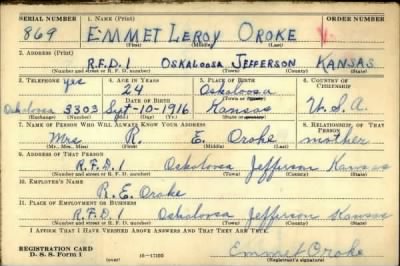 SERIAL NUMBER 1. NAME (Print) ORDER NUMBER
869 EMMET LEROY OROKE V.
(First) (Middle) (Last)
2. ADDRESS (Print)
R.F.D. 1 OSKALOOSA JEFFERSON KANSAS
(Number and street or R. F. D. number) (Town) (County) (State)
3. TELEPHONE 4. AGE IN YEARS 5. PLACE OF BIRTH 6. COUNTRY OF CITIZENSHIP
yes 24 Oskaloosa
(Town or county)
DATE OF BIRTH
Oskaloosa 3303 Sept-10-1916 Kansas U.S.A.
(Exchange) (Number) (Mo.) (Day) (Yr.) (State or country)
7. NAME OF PERSON WHO WILL ALWAYS KNOW YOUR ADDRESS 8. RELATIONSHIP OF THAT PERSON
Mrs. R. E. Oroke mother
(Mr., Mrs., Miss) (First) (Middle) (Last)
9. ADDRESS OF THAT PERSON
R.F.D. 1 Oskaloosa Jefferson Kansas
(Number and street or R. F. D. number) (Town) (County) (State)
10. EMPLOYER'S NAME
R.E. Oroke
11. PLACE OF EMPLOYMENT OR BUSINESS
R.F.D. 1 Oskaloosa Jefferson Kansas
(Number and street or R. F. D. number) (Town) (County) (State)
I AFFIRM THAT I HAVE VERIFIED ABOVE ANSWERS AND THAT THEY ARE TRUE.
REGISTRATION CARD
D. S. S. Form 1 16-17105 Emmet Oroke
(Registrant's signature)